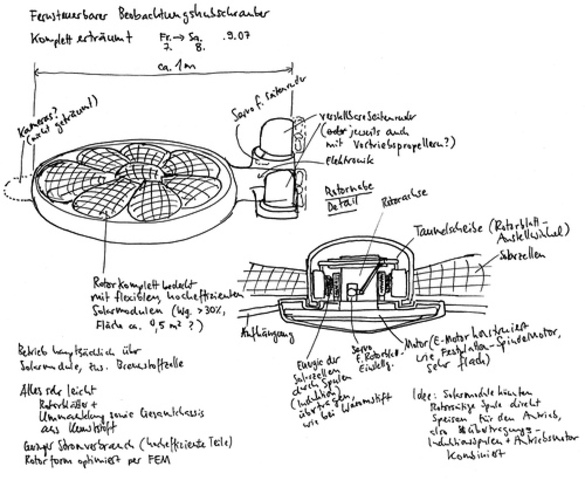 Fernsteuerbarer Beobachtungshubschrauber
Komplett erträumt Fr. → Sa. .9.07
7. 8.
ca. 1m
Kameras?
(nicht geträumt)
Servo f. Seitenruder
verstellbare Seitenruder
(oder jeweils auch
mit Vortriebspropellern?)
Elektronik
Rotornabe
Detail
Rotorachse
Taumelscheibe (Rotorblatt-
Anstellwinkel)
Solarzellen
Rotor komplett bedeckt
mit flexiblen, hocheffizienten
Solarmodulen (Wg. >30%,
Fläche ca. 0,5 m² ?)
Aufhängung
Energie der
Solarzellen
durch Spulen
(Induktion)
übertragen
wie bei
Servo
f. Rotorblatt-
Einstellg.
Motor (E-Motor konstruiert
wie Festplatten-Spindelmotor,
sehr flach)
Betrieb hauptsächlich über
Solarmodule, zus. Brennstoffzelle
Alles sehr leicht
Rotorblätter +
Ummantelung sowie Gesamtchassis
aus Kunststoff
Geringer Stromverbrauch (hocheffiziente Teile)
Rotorform optimiert per FEM
Idee: Solarmodule könnten
Rotorseitige Spule direkt
Speisen für den Antrieb,
also Übertragungs-
Induktionsspulen + Antriebsmotor
kombiniert